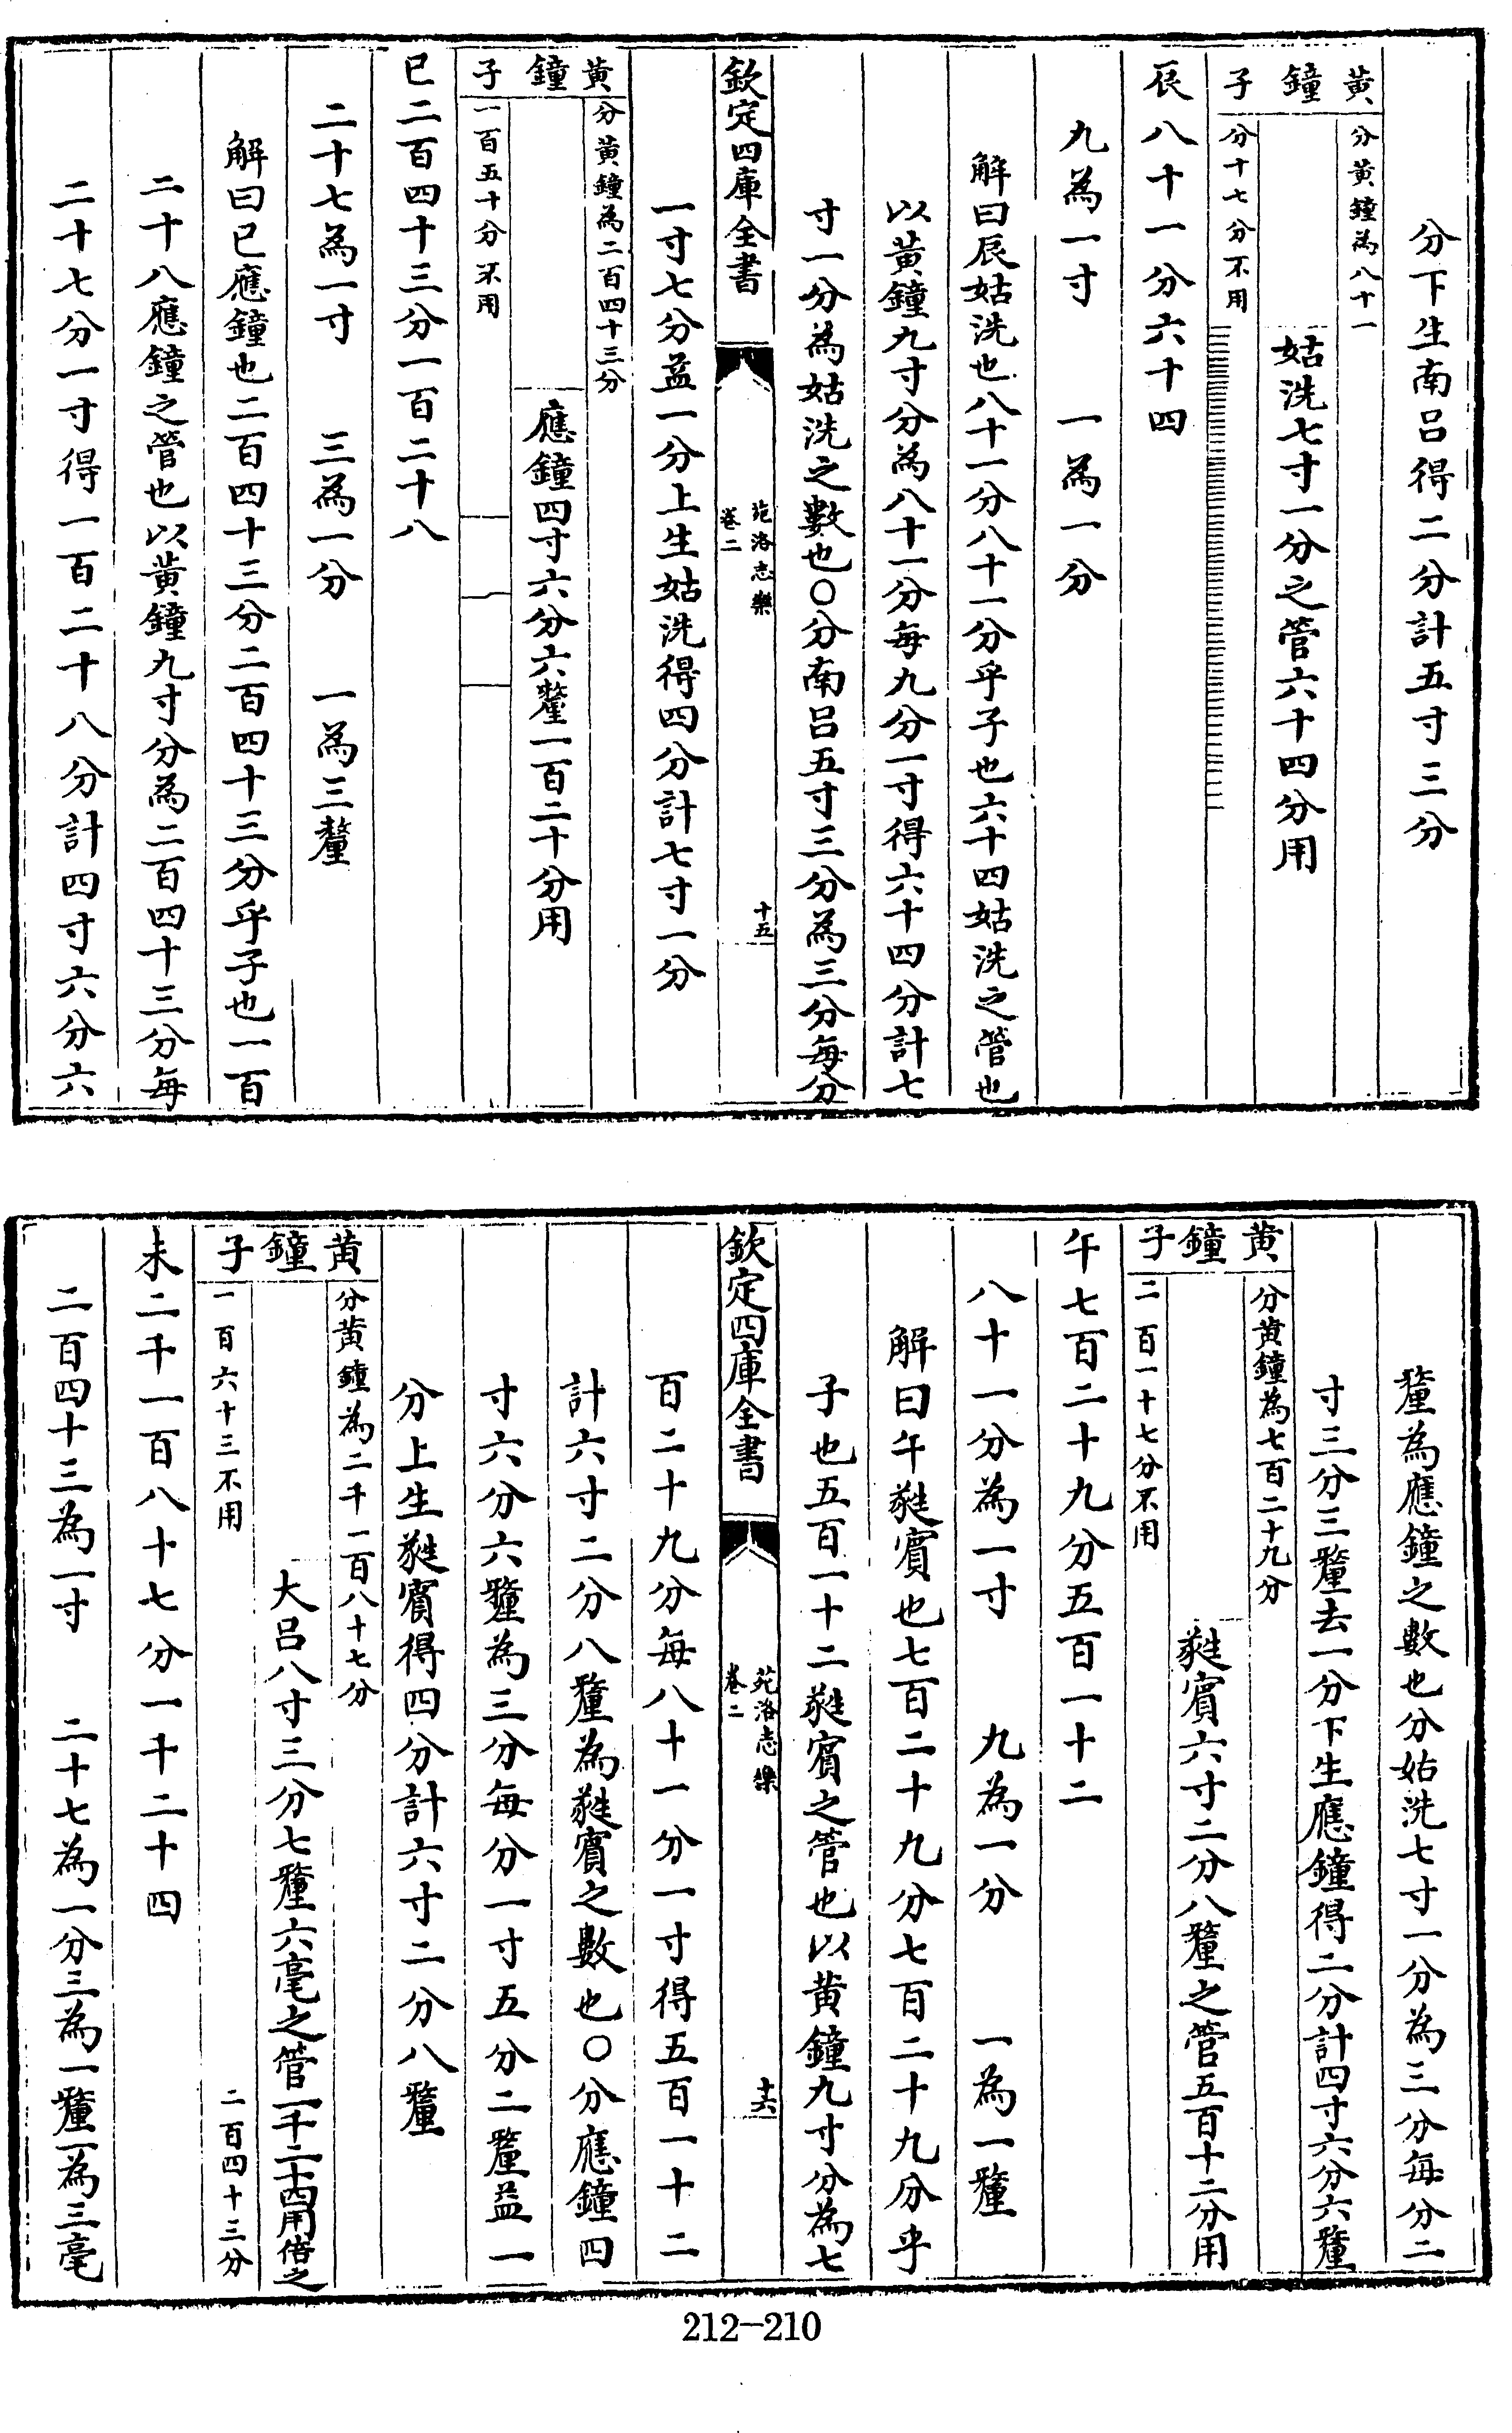 分下生南呂得二分計五寸三分
黃鐘子
分黃鐘為八十一
姑洗七寸一分之管六十四分用
分十七分不用
辰八十一分六十四
九為一寸　一為一分
解曰辰姑洗也八十一分八十一分乎子也六十四姑洗之管也
以黃鐘九寸分為八十一分每九分一寸得六十四分計七
寸一分為姑洗之數也○分南呂五寸三分為三分每分
欽定四庫全書
苑洛志樂
卷二
十五
一寸七分益一分上生姑洗得四分計七寸一分
黃鐘子
分黃鐘為二百四十三分
應鐘四寸六分六釐一百二十分用
一百五十分不用
巳二百四十三分一百二十八
二十七為一寸　三為一分　一為三釐
解曰巳應鐘也二百四十三分二百四十三分乎子也一百
二十八應鐘之管也以黃鐘九寸分為二百四十三分每
二十七分一寸得一百二十八分計四寸六分六
釐為應鐘之數也分姑洗七寸一分為三分每分二
寸三分三釐去一分下生應鐘得二分計四寸六分六釐
黃鐘子
分黃鐘為七百二十九分
蕤賓六寸二分八釐之管五百十二分用
二百一十七分不用
午七百二十九分五百一十二
八十一分為一寸　九為一分　一為一釐
解曰午蕤賓也七百二十九分七百二十九分乎
子也五百一十二蕤賓之管也以黃鐘九寸分為七
欽定四庫全書
苑洛志樂
卷二
十六
百二十九分每八十一分一寸得五百一十二
計六寸二分八釐為蕤賓之數也○分應鐘四
寸六分六釐為三分每分一寸五分二釐益一
分上生蕤賓得四分計六寸二分八釐
黃鐘子
分黃鐘為二千一百八十七分
大呂八寸三分七釐六毫之管一千二十四用倍之
一百六十三不用　二百四十三分
未二千一百八十七分一千二十四
二百四十三為一寸　二十七為一分三為一釐一為三毫
212-210